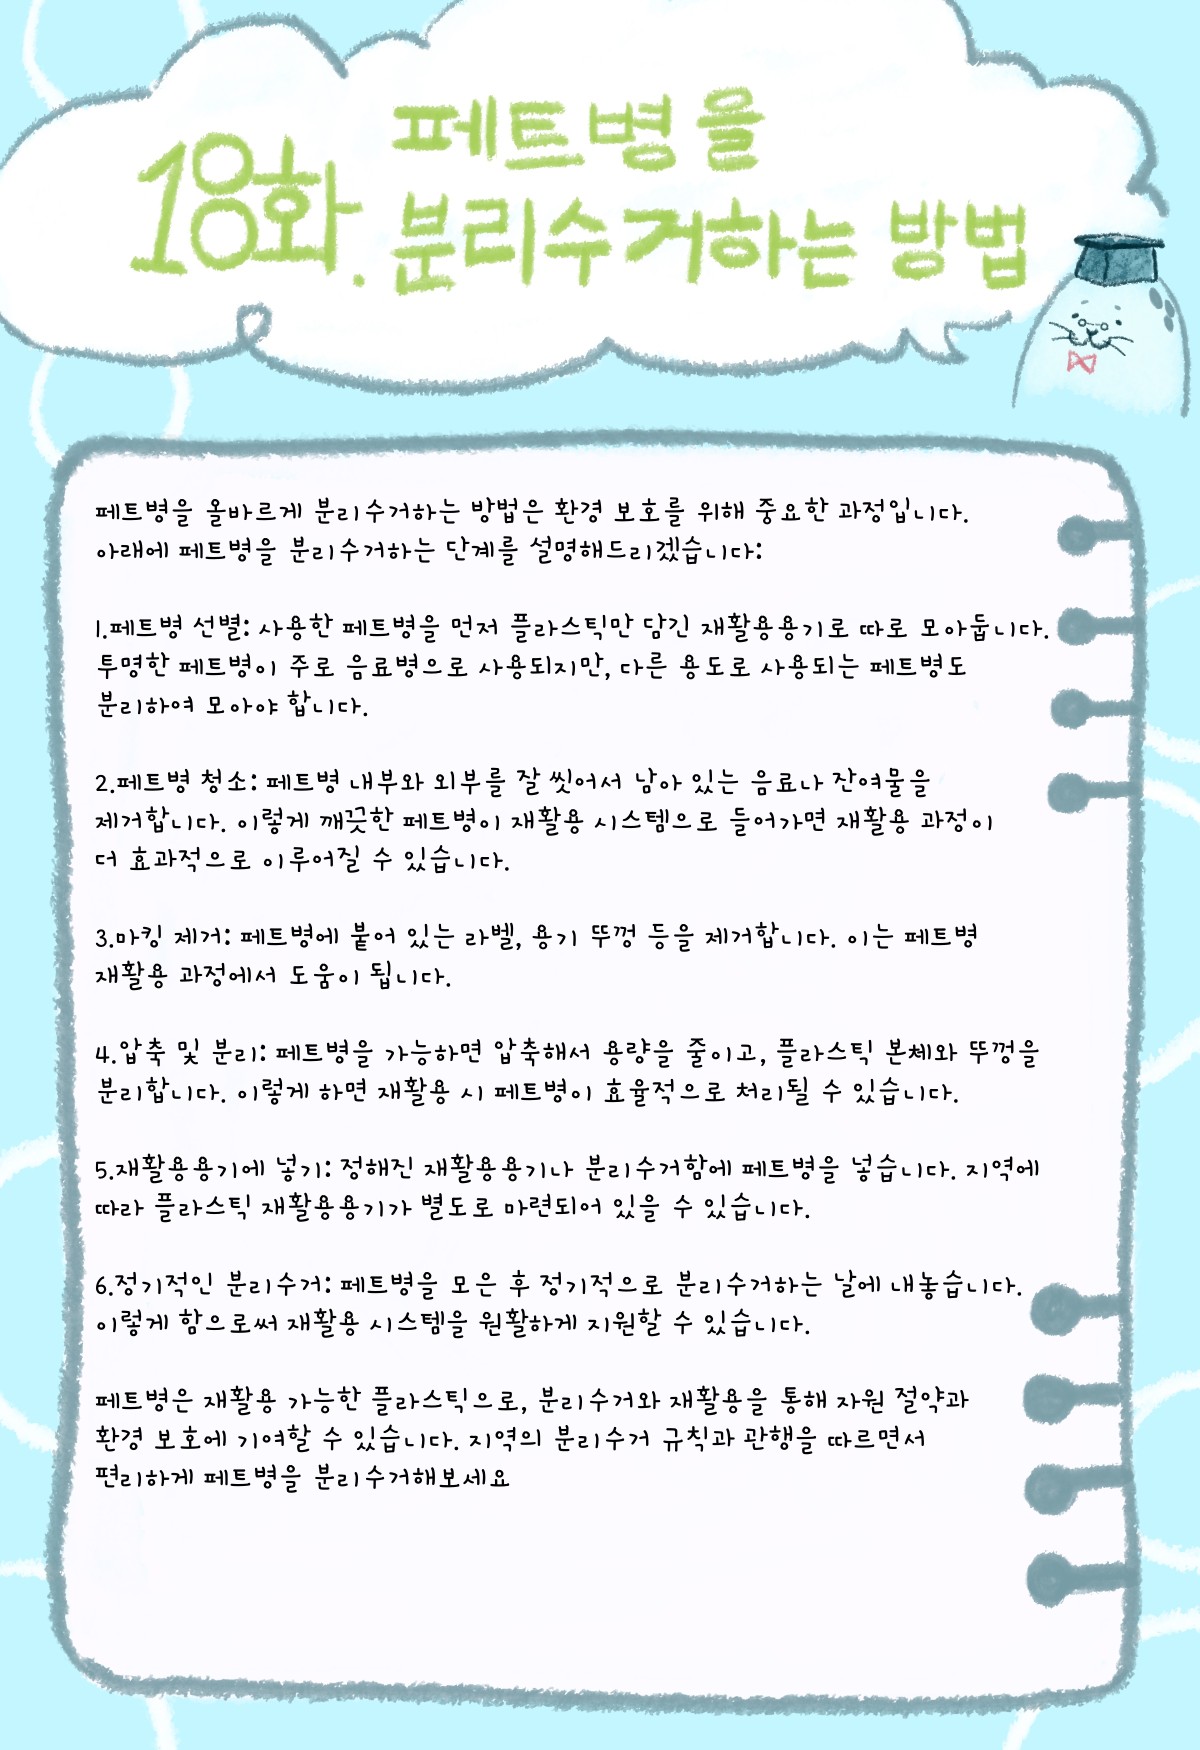 18화. 페트병을
분리수거하는 방법
페트병을 올바르게 분리수거하는 방법은 환경 보호를 위해 중요한 과정입니다.
아래에 페트병을 분리수거하는 단계를 설명해드리겠습니다:
1.페트병 선별: 사용한 페트병을 먼저 플라스틱만 담긴 재활용용기로 따로 모아둡니다.
투명한 페트병이 주로 음료병으로 사용되지만, 다른 용도로 사용되는 페트병도
분리하여 모아야 합니다.
2.페트병 청소: 페트병 내부와 외부를 잘 씻어서 남아 있는 음료나 잔여물을
제거합니다. 이렇게 깨끗한 페트병이 재활용 시스템으로 들어가면 재활용 과정이
더 효과적으로 이루어질 수 있습니다.
3.마킹 제거: 페트병에 붙어 있는 라벨, 용기 뚜껑 등을 제거합니다. 이는 페트병
재활용 과정에서 도움이 됩니다.
4.압축 및 분리: 페트병을 가능하면 압축해서 용량을 줄이고, 플라스틱 본체와 뚜껑을
분리합니다. 이렇게 하면 재활용 시 페트병이 효율적으로 처리될 수 있습니다.
5.재활용용기에 넣기: 정해진 재활용용기나 분리수거함에 페트병을 넣습니다. 지역에
따라 플라스틱 재활용용기가 별도로 마련되어 있을 수 있습니다.
6.정기적인 분리수거: 페트병을 모은 후 정기적으로 분리수거하는 날에 내놓습니다.
이렇게 함으로써 재활용 시스템을 원활하게 지원할 수 있습니다.
페트병은 재활용 가능한 플라스틱으로, 분리수거와 재활용을 통해 자원 절약과
환경 보호에 기여할 수 있습니다. 지역의 분리수거 규칙과 관행을 따르면서
편리하게 페트병을 분리수거해보세요